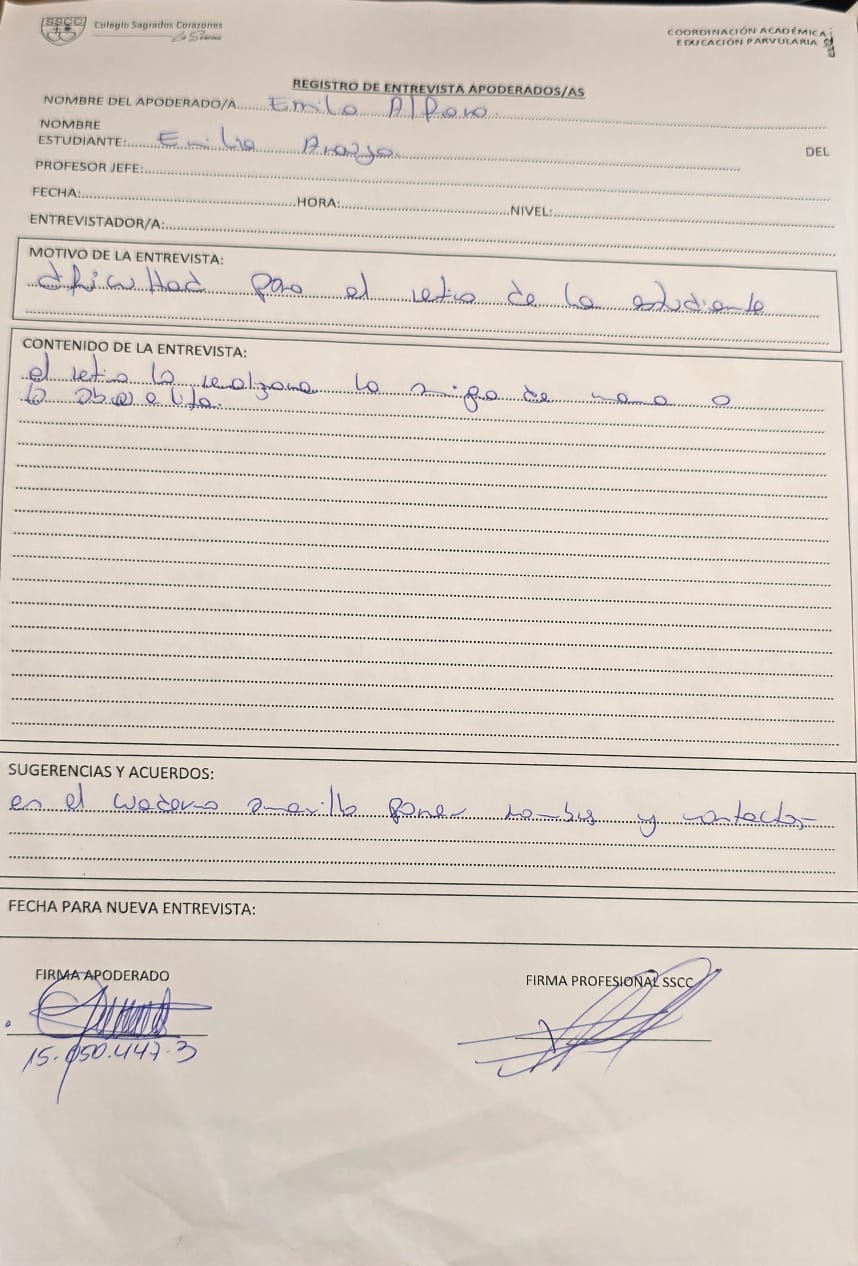 SSCC Colegio Sagrados Corazones
La Serena
COORDINACIÓN ACADÉMICA
EDUCACIÓN PARVULARIA
REGISTRO DE ENTREVISTA APODERADOS/AS
NOMBRE DEL APODERADO/A Emilio Alfaro
NOMBRE
ESTUDIANTE: Emilia DEL
PROFESOR JEFE:
FECHA: HORA: NIVEL:
ENTREVISTADOR/A:
MOTIVO DE LA ENTREVISTA:
dificultad para el retiro de la estudiante
CONTENIDO DE LA ENTREVISTA:
el retiro lo la amiga de mama o
la abuelita.
SUGERENCIAS Y ACUERDOS:
en el cuaderno amarillo poner nombres y contactos
FECHA PARA NUEVA ENTREVISTA:
FIRMA APODERADO FIRMA PROFESIONAL SSCC
15.050.447-3